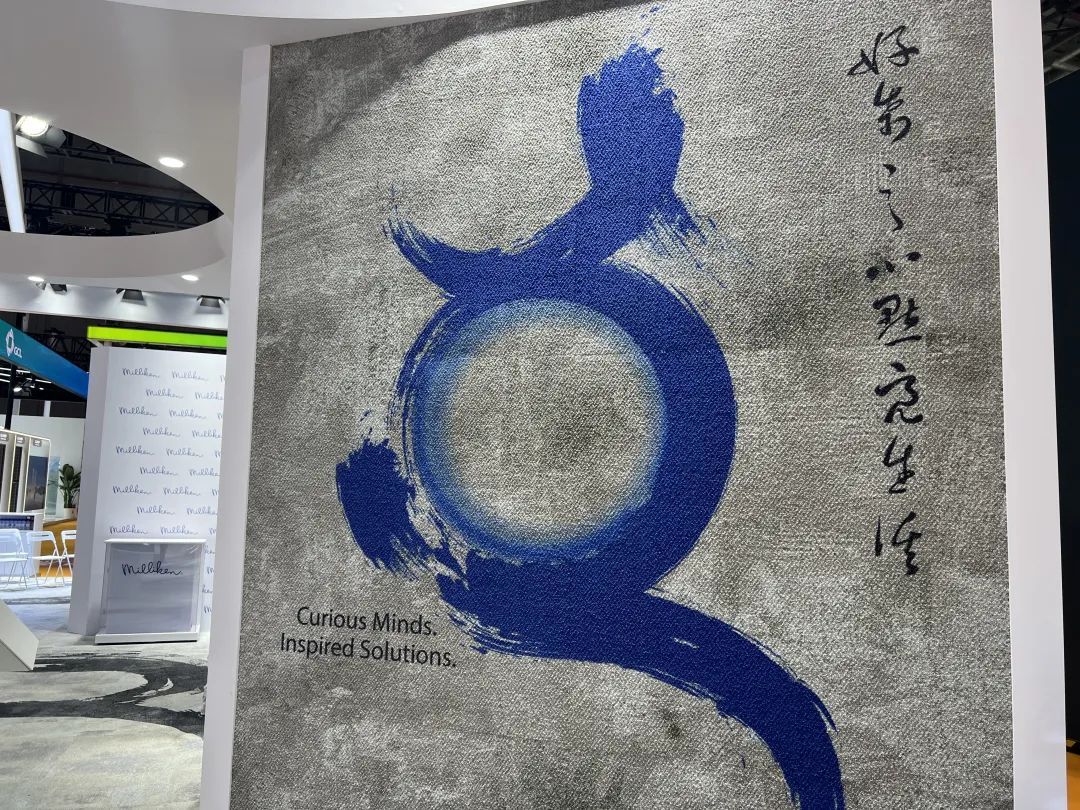 好奇之心點亮生活
Curious Minds.
Inspired Solutions.
Milliken. Milliken.
Milliken. Milliken.
Milliken. Milliken.
Milliken. Milliken.
Milliken. Milliken.
Milliken. Milliken.
Milliken. Milliken.
Milliken. Milliken.
Milliken. Milliken.
Milliken.